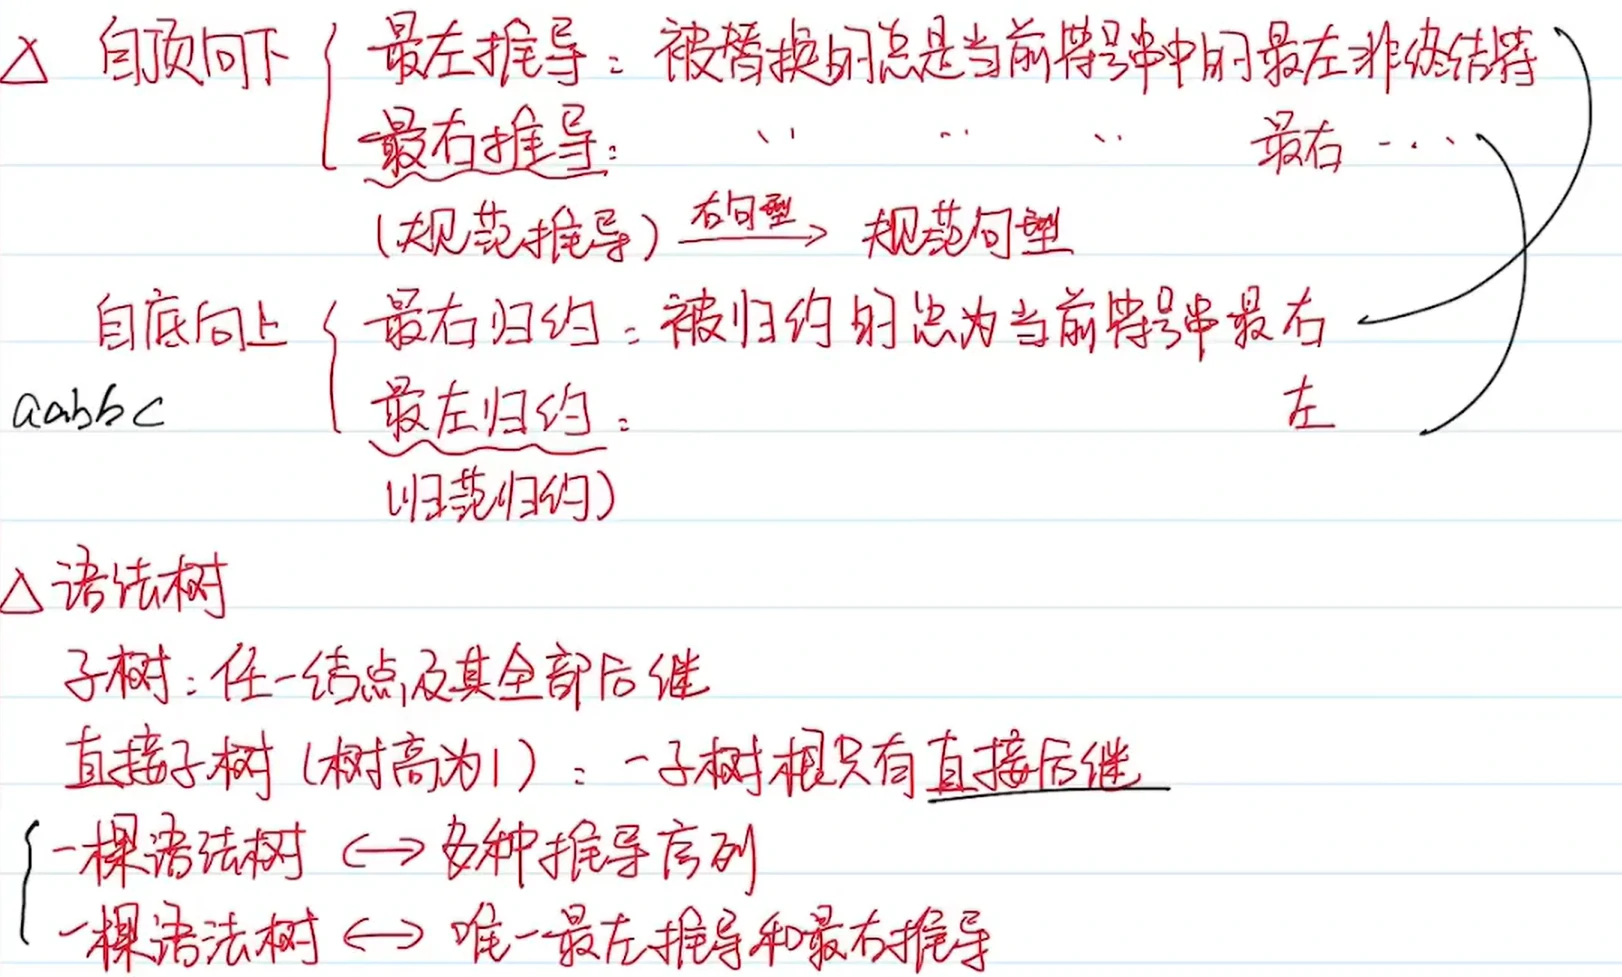 △ 自顶向下 { 最左推导：被替换的总是当前符号串中的最左非终结符
最右推导： 〃 〃 〃 最右 ····
(规范推导) 右句型 → 规范句型
自底向上 { 最右归约：被归约的总为当前符号串最右
aabbc 最左归约： 左
(归范归约)
△ 语法树
子树：任一结点及其全部后继
直接子树 (树高为1)：一子树根只有直接后继
{ 一棵语法树 ↔ 多种推导序列
一棵语法树 ↔ 唯一最左推导和最右推导